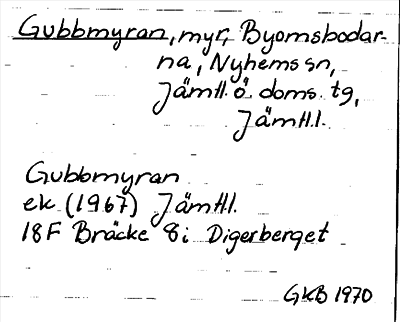 Gubbmyran, myr, Byomsbodar-
na, Nyhems sn,
Jämtl. ö. doms. tg,
Jämtl.l.
Gubbmyran
ek (1967) Jämtl.l.
18F Bräcke 8i Digerberget
GKB 1970